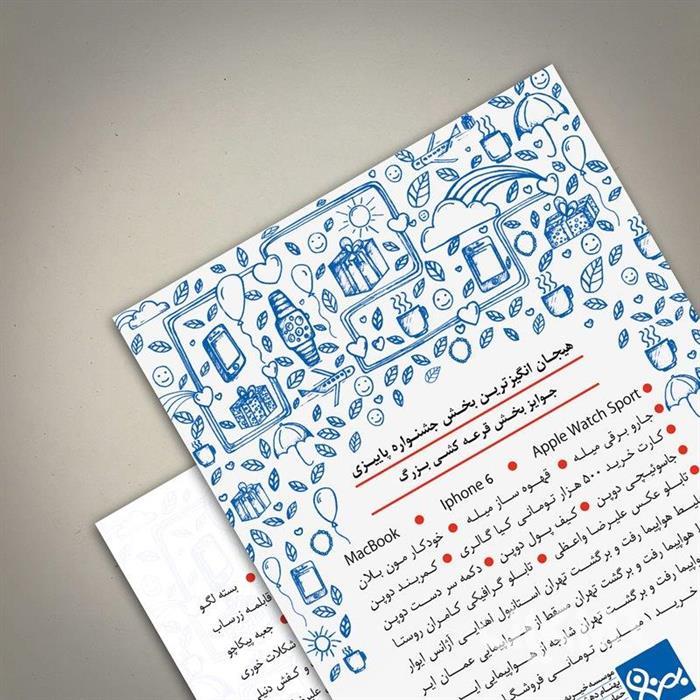 هیجان انگیزترین بخش جشنواره پاییزی
جوایز بخش قرعه کشی بزرگ
Apple Watch Sport • Iphone 6 • MacBook
جارو برقی میله • قهوه ساز میله • خودکار مون بلان
کارت خرید ۵۰۰ هزار تومانی کیا گالری
جاسوئیچی دوپن • کیف پول دوپن • کمربند دوپن
تابلو عکس علیرضا واعظی • دکمه سر دست دوپن
تابلو گرافیکی کامران روستا
هواپیما رفت و برگشت تهران استانبول اهدایی آژانس ایوار
هواپیما رفت و برگشت تهران مسقط از هواپیمایی عمان ایر
هواپیما رفت و برگشت تهران شارجه از هواپیمایی
خرید ۱ میلیون تومانی
بسته لگو
قابلمه زرساب
جعبه پیکاچو
شکلات خوری
و کفش دنیلی